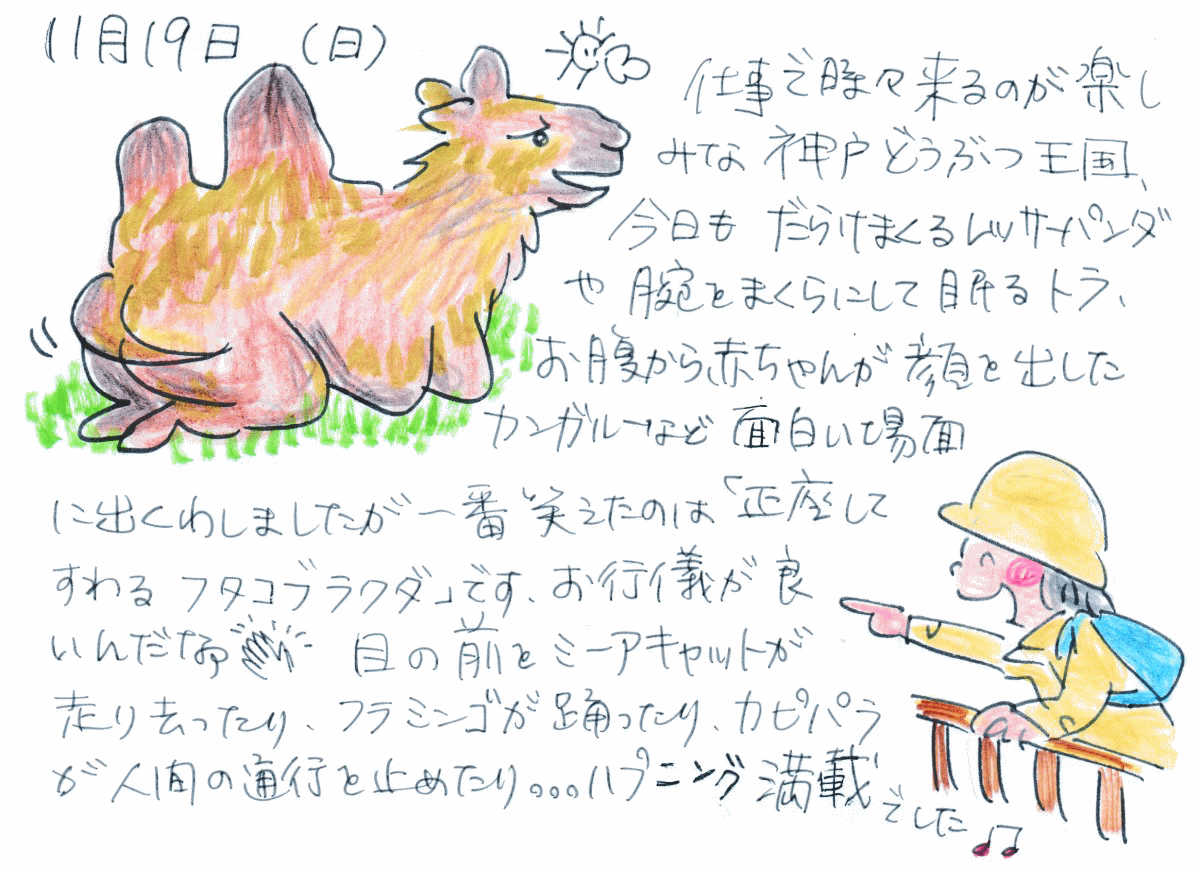 11月19日 (日)
仕事で時々来るのが楽し
みな 神戸どうぶつ王国、
今日も だらけまくるレッサーパンダ
や 腕をまくらにして眠るトラ、
お腹から赤ちゃんが顔を出した
カンガルーなど 面白い場面
に出くわしましたが一番笑えたのは「正座して
すわる フタコブラクダ」です、お行儀が良
いんだなァ 目の前をミーアキャットが
走り去ったり、フラミンゴが踊ったり、カピパラ
が人間の通行を止めたり。。。ハプニング満載でした♫